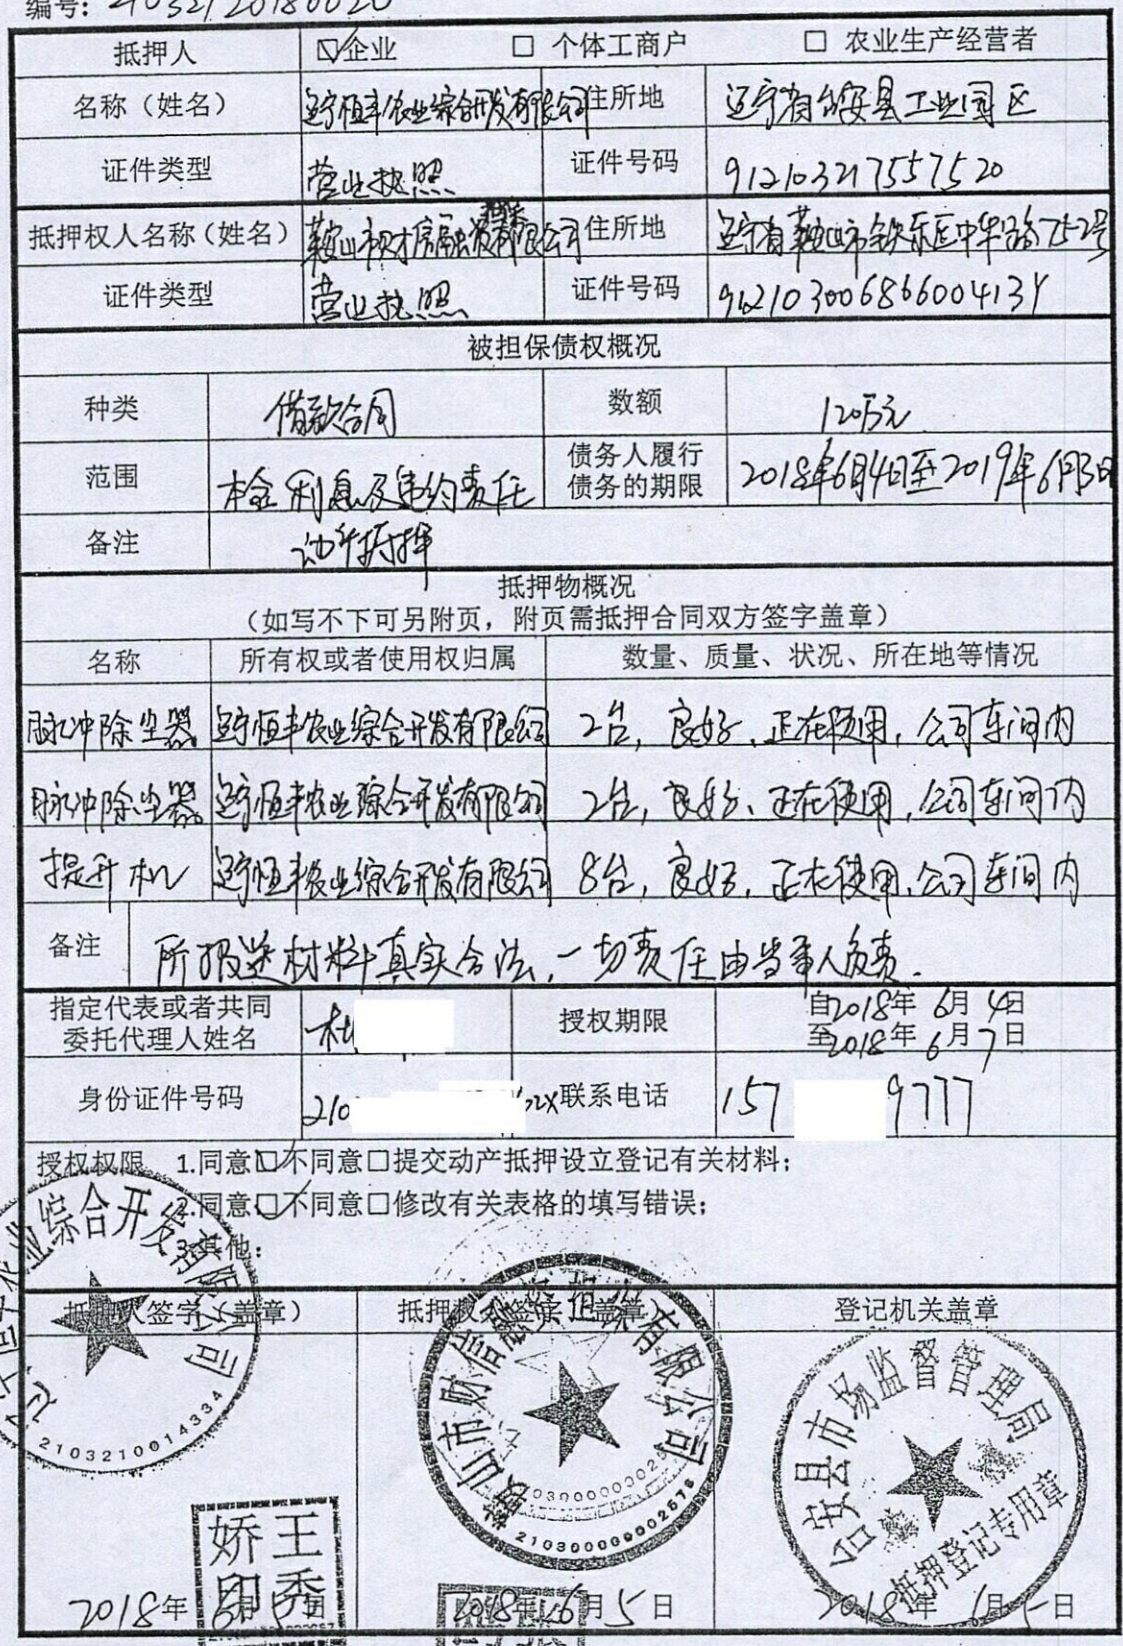 编号: 21032120180020
抵押人 ☑企业 □ 个体工商户 □ 农业生产经营者
名称（姓名） 辽宁恒丰农业综合开发有限公司 住所地 辽宁省台安县工业园区
证件类型 营业执照 证件号码 912103217557520
抵押权人名称（姓名） 鞍山市财信融资担保有限公司 住所地 辽宁省鞍山市铁东区中华路752号
证件类型 营业执照 证件号码 91210300686600413Y
被担保债权概况
种类 借款合同 数额 120万元
范围 本金利息及违约责任 债务人履行
债务的期限 2018年6月4日至2019年6月3日
备注 动产抵押
抵押物概况
（如写不下可另附页，附页需抵押合同双方签字盖章）
名称 所有权或者使用权归属 数量、质量、状况、所在地等情况
脉冲除尘器 辽宁恒丰农业综合开发有限公司 2台，良好、正在使用，公司车间内
脉冲除尘器 辽宁恒丰农业综合开发有限公司 2台，良好、正在使用，公司车间内
提升机 辽宁恒丰农业综合开发有限公司 8台，良好，正在使用，公司车间内
备注 所报送材料真实合法，一切责任由当事人负责.
指定代表或者共同
委托代理人姓名 杜 授权期限 自2018年 6月 4日
至2018年 6月 7日
身份证件号码 210 02X 联系电话 157 9777
授权权限 1.同意☑不同意□提交动产抵押设立登记有关材料;
2.同意☑不同意□修改有关表格的填写错误;
3.其他:
抵押人签字（盖章） 抵押权人签字（盖章） 登记机关盖章
农业综合开发有限公司
2103210014334
鞍山市财信融资担保有限公司
台安县市场监督管理局
抵押登记专用章
王秀娇印
2018年 6月5日 2018年6月5日 2018年 6月5日